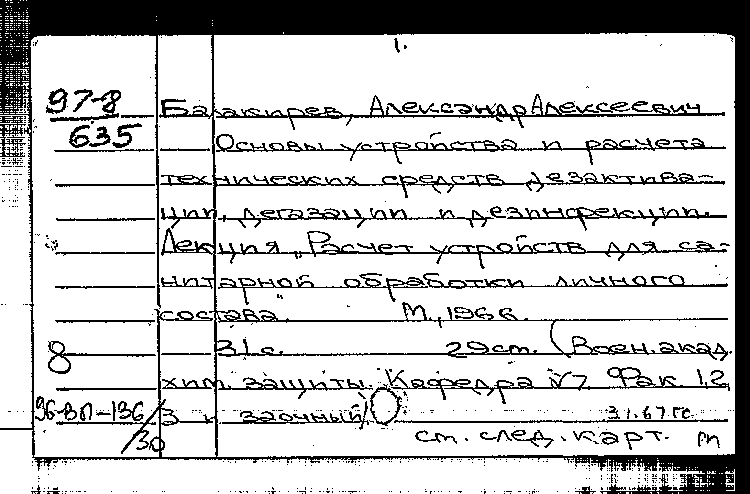 1.
97-8
635
Балакирев, Александр Алексеевич
Основы устройства и расчета
технических средств дезактива-
ции, дегазации и дезинфекции.
Лекция „Расчет устройств для са-
нитарной обработки личного
состава". М.,
8 31 с. 29 см. (Воен. акад.
хим. защиты. Кафедра №7. Фак. 1,2,
96-ВП-136/30 3 и заочный)
см. след. карт. м